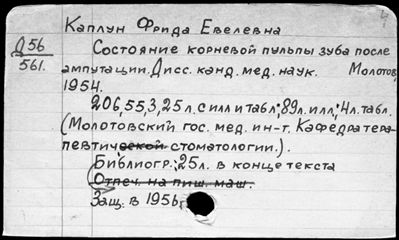 4
Каплун Фрида Евелевна
Д56
561.
Состояние корневой пульпы зуба после
ампутации. Дисс. канд. мед. наук. Молотов,
1954.
206,55,3,25л. с илл и табл; 89л. илл; 4л. табл.
(Молотовский гос. мед. ин-т. Кафедра тера-
певтической стоматологии.).
(Библиогр.: 25л. в конце текста
Отпеч. на пиш. маш.
Защ. в 1956г.